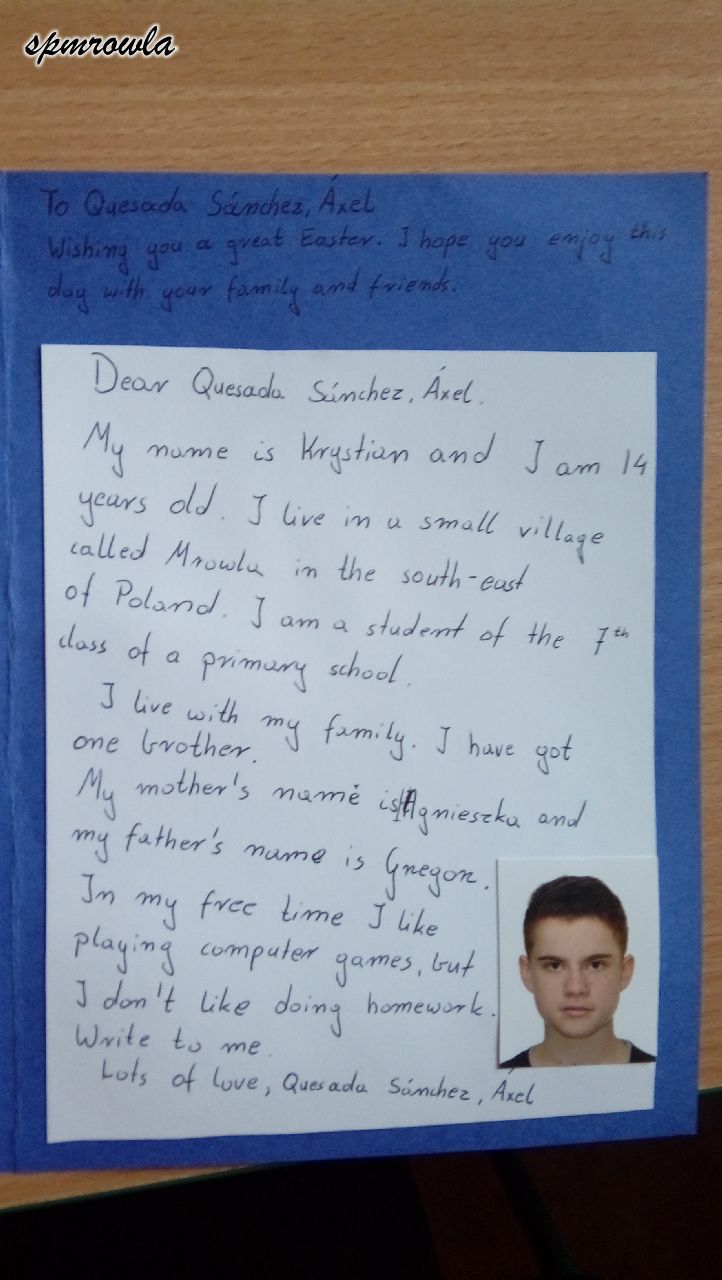 spmrowla
To Quesada Sánchez, Áxel
Wishing you a great Easter. I hope you enjoy this
day with your family and friends.
Dear Quesada Sánchez, Áxel.
My name is Krystian and I am 14
years old. I live in a small village
called Mrowla in the south-east
of Poland. I am a student of the 7th
class of a primary school.
I live with my family. I have got
one brother.
My mother's name is Agnieszka and
my father's name is Gregor.
In my free time I like
playing computer games, but
I don't like doing homework.
Write to me.
Lots of love, Quesada Sánchez, Áxel